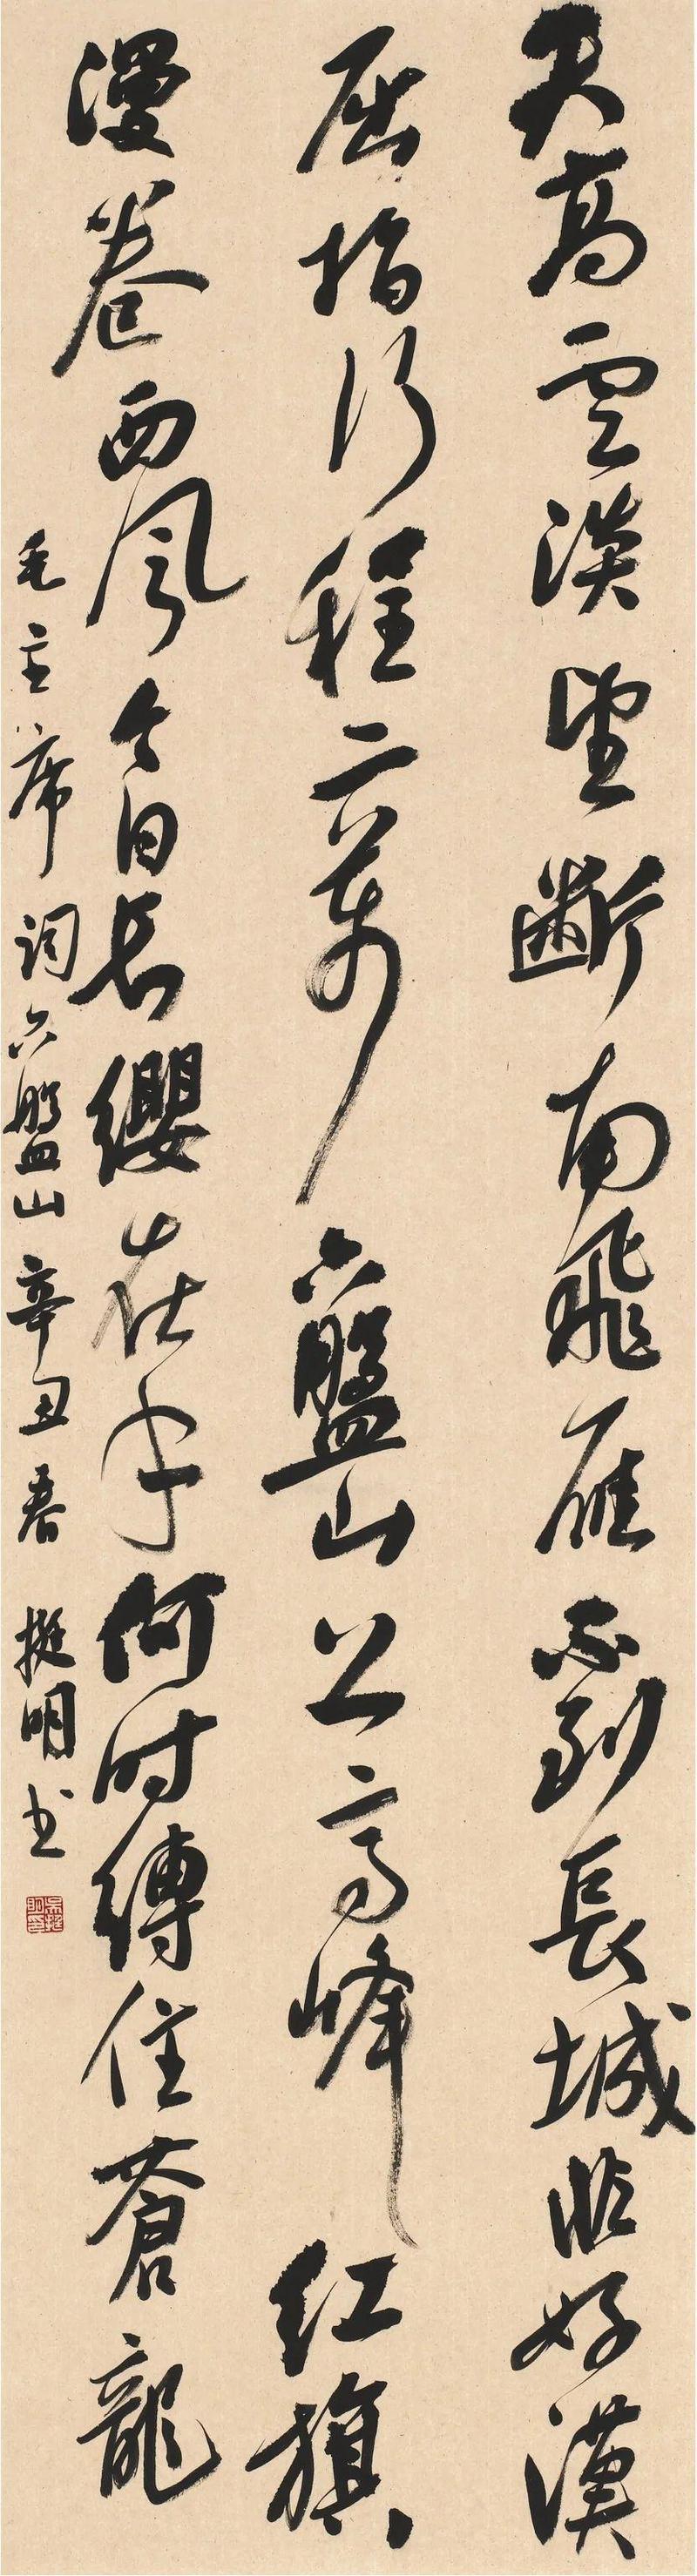 天高雲淡望斷南飛雁不到長城非好漢
屈指行程二萬六盤山上高峰红旗
漫卷西风今日长纓在手何时縛住蒼龍
毛主席词六盤山辛丑春 挺明书